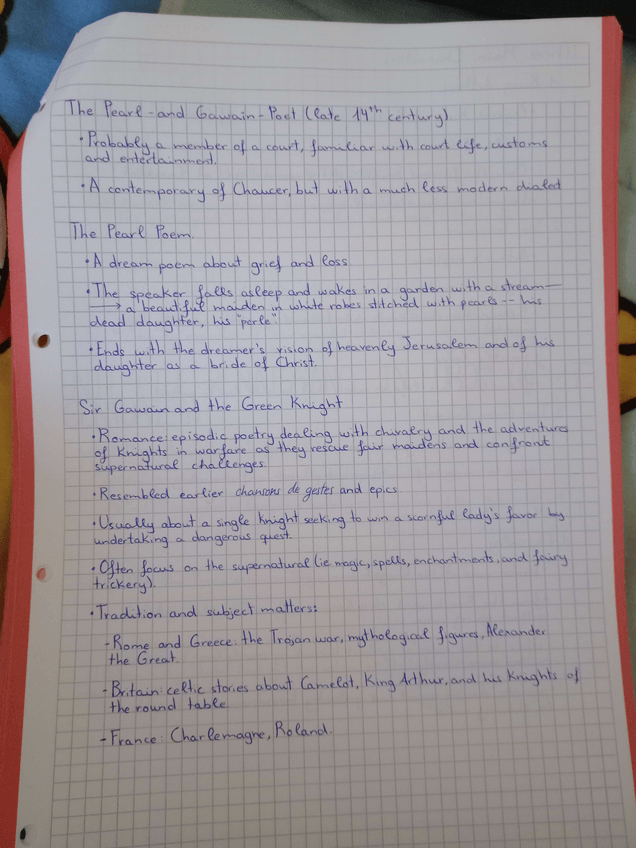 The Pearl-and Gawain-Poet (late 14th century)
• Probably a member of a court, familiar with court life, customs
and entertainment.
• A contemporary of Chaucer, but with a much less modern dialect
The Pearl Poem.
• A dream poem about grief and loss
• The speaker falls asleep and wakes in a garden with a stream—
→ a beautiful maiden in white robes stitched with pearls -- his
dead daughter, his "perle"
• Ends with the dreamer's vision of heavenly Jerusalem and of his
daughter as a bride of Christ.
Sir Gawain and the Green Knight
• Romance: episodic poetry dealing with chivalry and the adventures
of Knights in warfare as they rescue fair maidens and confront
supernatural challenges.
• Resembled earlier chansons de gestes and epics
• Usually about a single Knight seeking to win a scornful lady's favor by
undertaking a dangerous quest.
• Often focus on the supernatural (ie magic, spells, enchantments, and fairy
trickery).
• Tradition and subject matters:
- Rome and Greece: the Trojan war, mythological figures, Alexander
the Great.
- Britain: celtic stories about Camelot, King Arthur, and his Knights of
the round table
- France: Charlemagne, Roland.